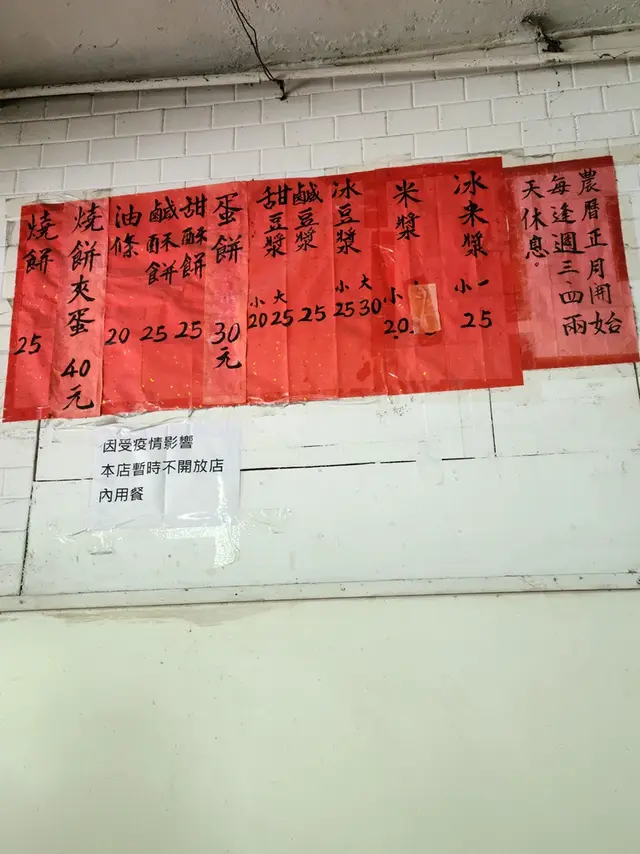 農曆正月開始
每逢週三、四兩
天休息。
冰米漿 小 25
米漿 小 20
冰豆漿 大 30 小 25
鹹豆漿 25
甜豆漿 大 25 小 20
蛋餅 30元
甜酥餅 25
鹹酥餅 25
油條 20
燒餅夾蛋 40元
燒餅 25
因受疫情影響
本店暫時不開放店
內用餐